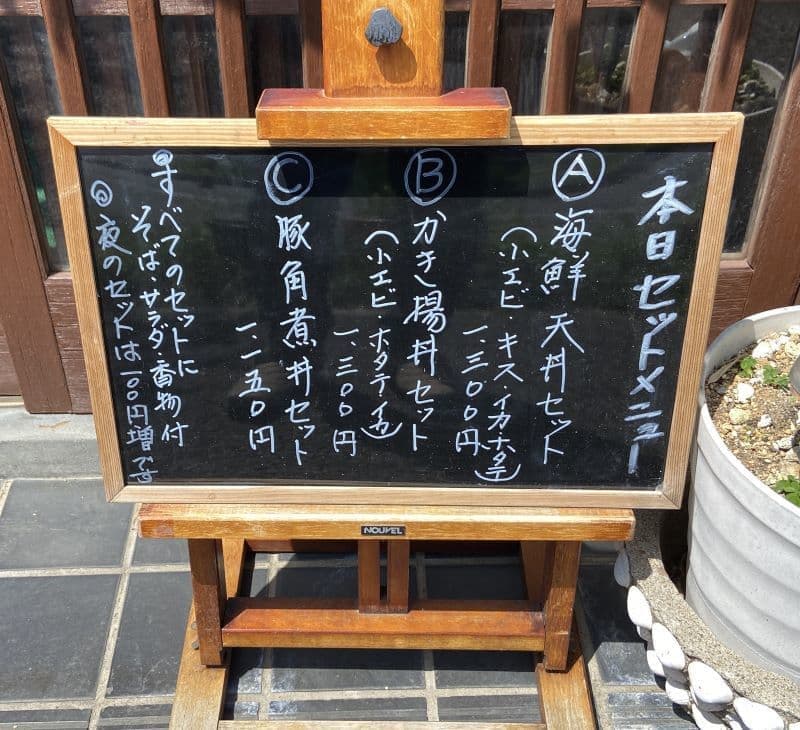 本日セットメニュー
Ⓐ海鮮天丼セット
(小エビ・キス・イカホタテ)
一、三〇〇円
Ⓑかき揚丼セット
(小エビ・ホタテ・イカ)
一、三〇〇円
Ⓒ豚角煮丼セット
一、二五〇円
◎すべてのセットに
そば・サラダ・香物付
◎夜のセットは一〇〇円増です
NOUVEL